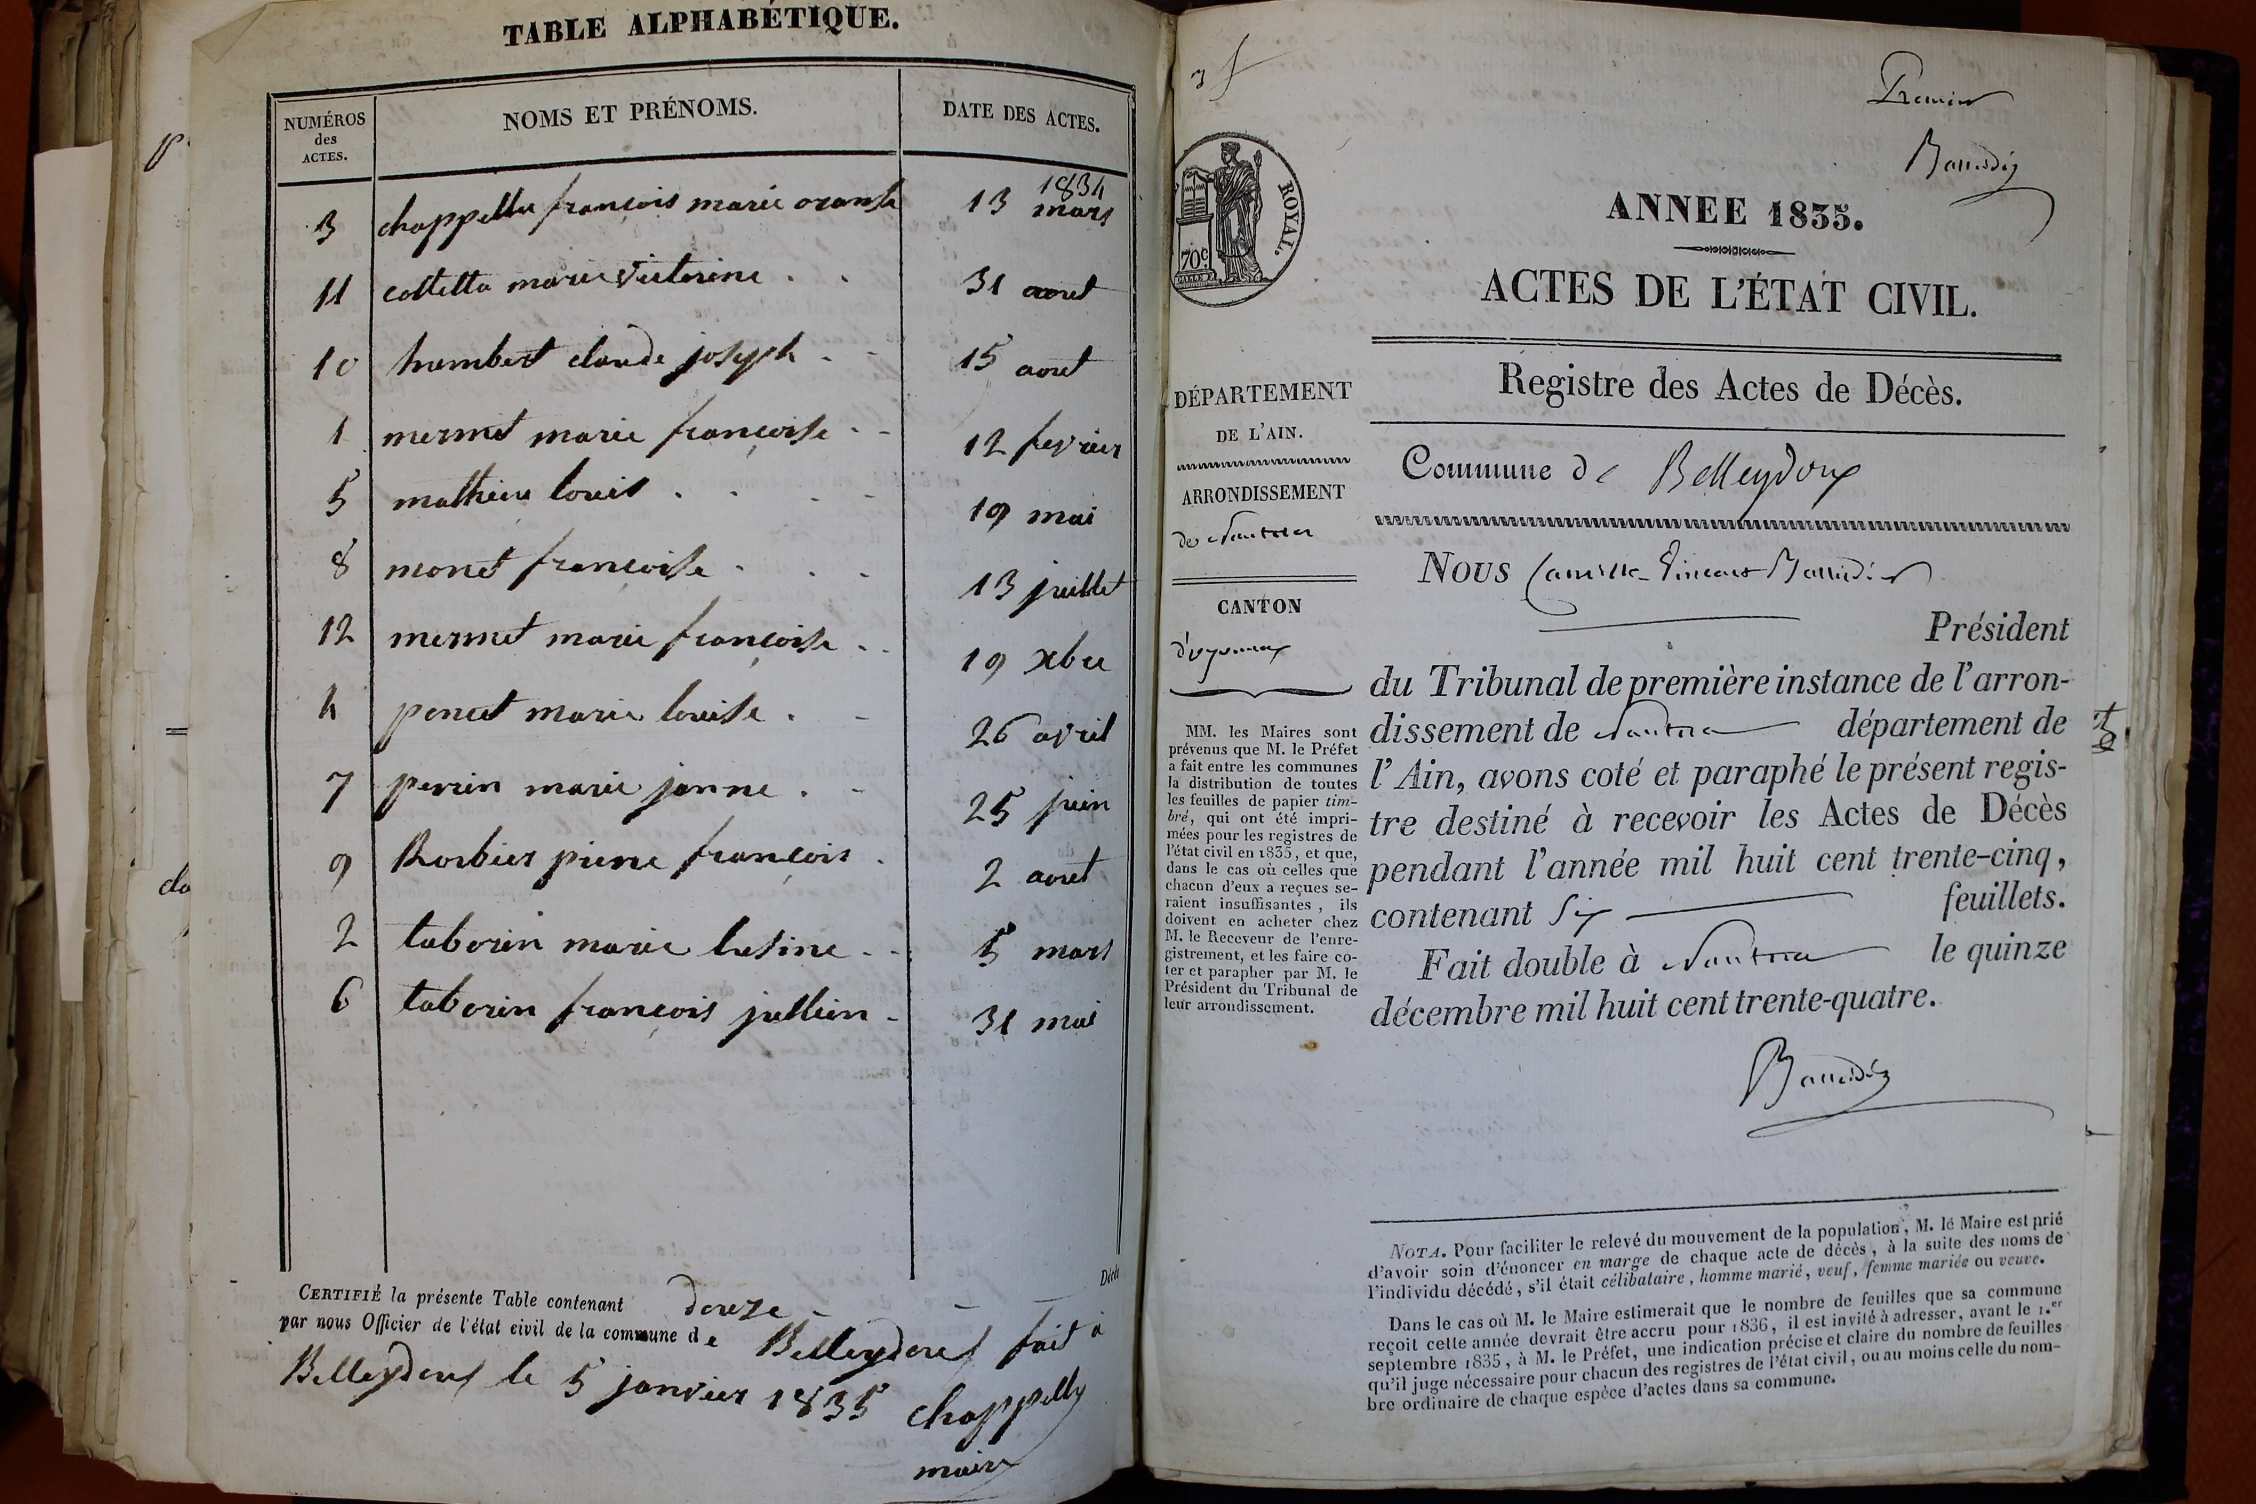 TABLE ALPHABÉTIQUE.
NUMÉROS
des
ACTES.
NOMS ET PRÉNOMS.
DATE DES ACTES.
1834
3 chappellu françois marie 13 mars
11 cottetta marie Victorine . . 31 aout
10 humbert claude joseph . - 15 aout
1 mermet marie françoise - - 12 fevrier
5 mathieu louis . . . - 19 mai
8 monet françoise - . - 13 juillet
12 mermet marie françoise - . 19 xbre
4 poncet marie louise . - 26 avril
7 perrin marie janne . - 25 juin
9 Rosbier pierre françois . 2 aout
2 taborin marie - . 5 mars
6 taborin françois jullien - 31 mai
CERTIFIÉ la présente Table contenant douze - - - Décès
par nous Officier de l'état civil de la commune de Belleydoux fait à
Belleydoux le 5 janvier 1835
chappelluy
maire
3 f
Premier
ROYAL.
70c.
ANNEE 1835.
ACTES DE L'ÉTAT CIVIL.
Registre des Actes de Décès.
DÉPARTEMENT
DE L'AIN.
ARRONDISSEMENT
de Nantua
CANTON
d'oyonnax
MM. les Maires sont
prévenus que M. le Préfet
a fait entre les communes
la distribution de toutes
les feuilles de papier tim-
bré, qui ont été impri-
mées pour les registres de
l'état civil en 1835, et que,
dans le cas où celles que
chacun d'eux a reçues se-
raient insuffisantes, ils
doivent en acheter chez
M. le Receveur de l'enre-
gistrement, et les faire co-
ter et parapher par M. le
Président du Tribunal de
leur arrondissement.
Commune de Belleydoux
Nous Camille Vincent
Président
du Tribunal de première instance de l'arron-
dissement de Nantua département de
l'Ain, avons coté et paraphé le présent regis-
tre destiné à recevoir les Actes de Décès
pendant l'année mil huit cent trente-cinq,
contenant Six feuillets.
Fait double à Nantua le quinze
décembre mil huit cent trente-quatre.
NOTA. Pour faciliter le relevé du mouvement de la population, M. le Maire est prié
d'avoir soin d'énoncer en marge de chaque acte de décès, à la suite des noms de
l'individu décédé, s'il était célibataire, homme marié, veuf, femme mariée ou veuve.
Dans le cas où M. le Maire estimerait que le nombre de feuilles que sa commune
reçoit cette année devrait être accru pour 1836, il est invité à adresser, avant le 1.er
septembre 1835, à M. le Préfet, une indication précise et claire du nombre de feuilles
qu'il juge nécessaire pour chacun des registres de l'état civil, ou au moins celle du nom-
bre ordinaire de chaque espèce d'actes dans sa commune.